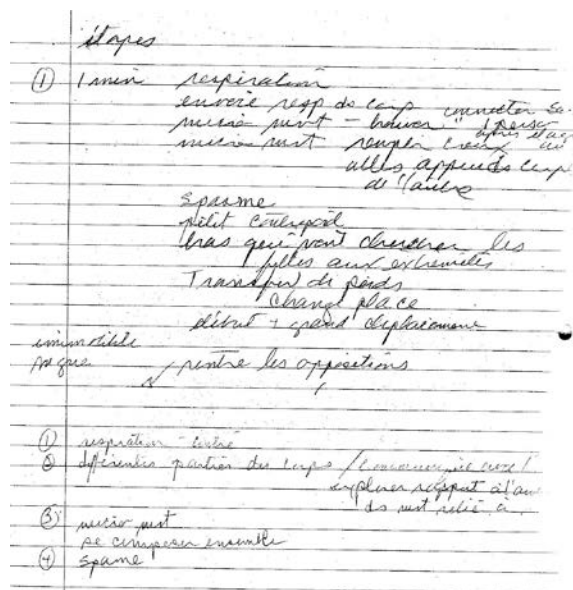 étapes
① 1 min respiration
envoie resp ds corps connecter sa
micro mvt - trouver 1 perso
micro mvt remplir creux
allés appuis ds corps
de l'autre
spasme
petit contrepoid
bras qui vont chercher les
filles aux extremités
Transfer de poids
change place
début + grand déplacement
immobile
rentre les oppositions
① respiration - centré
② différentes parties du corps /
explorer rapport à l'au
ds mvt relié à
③ micro mvt
se composer ensemble
④ spasme